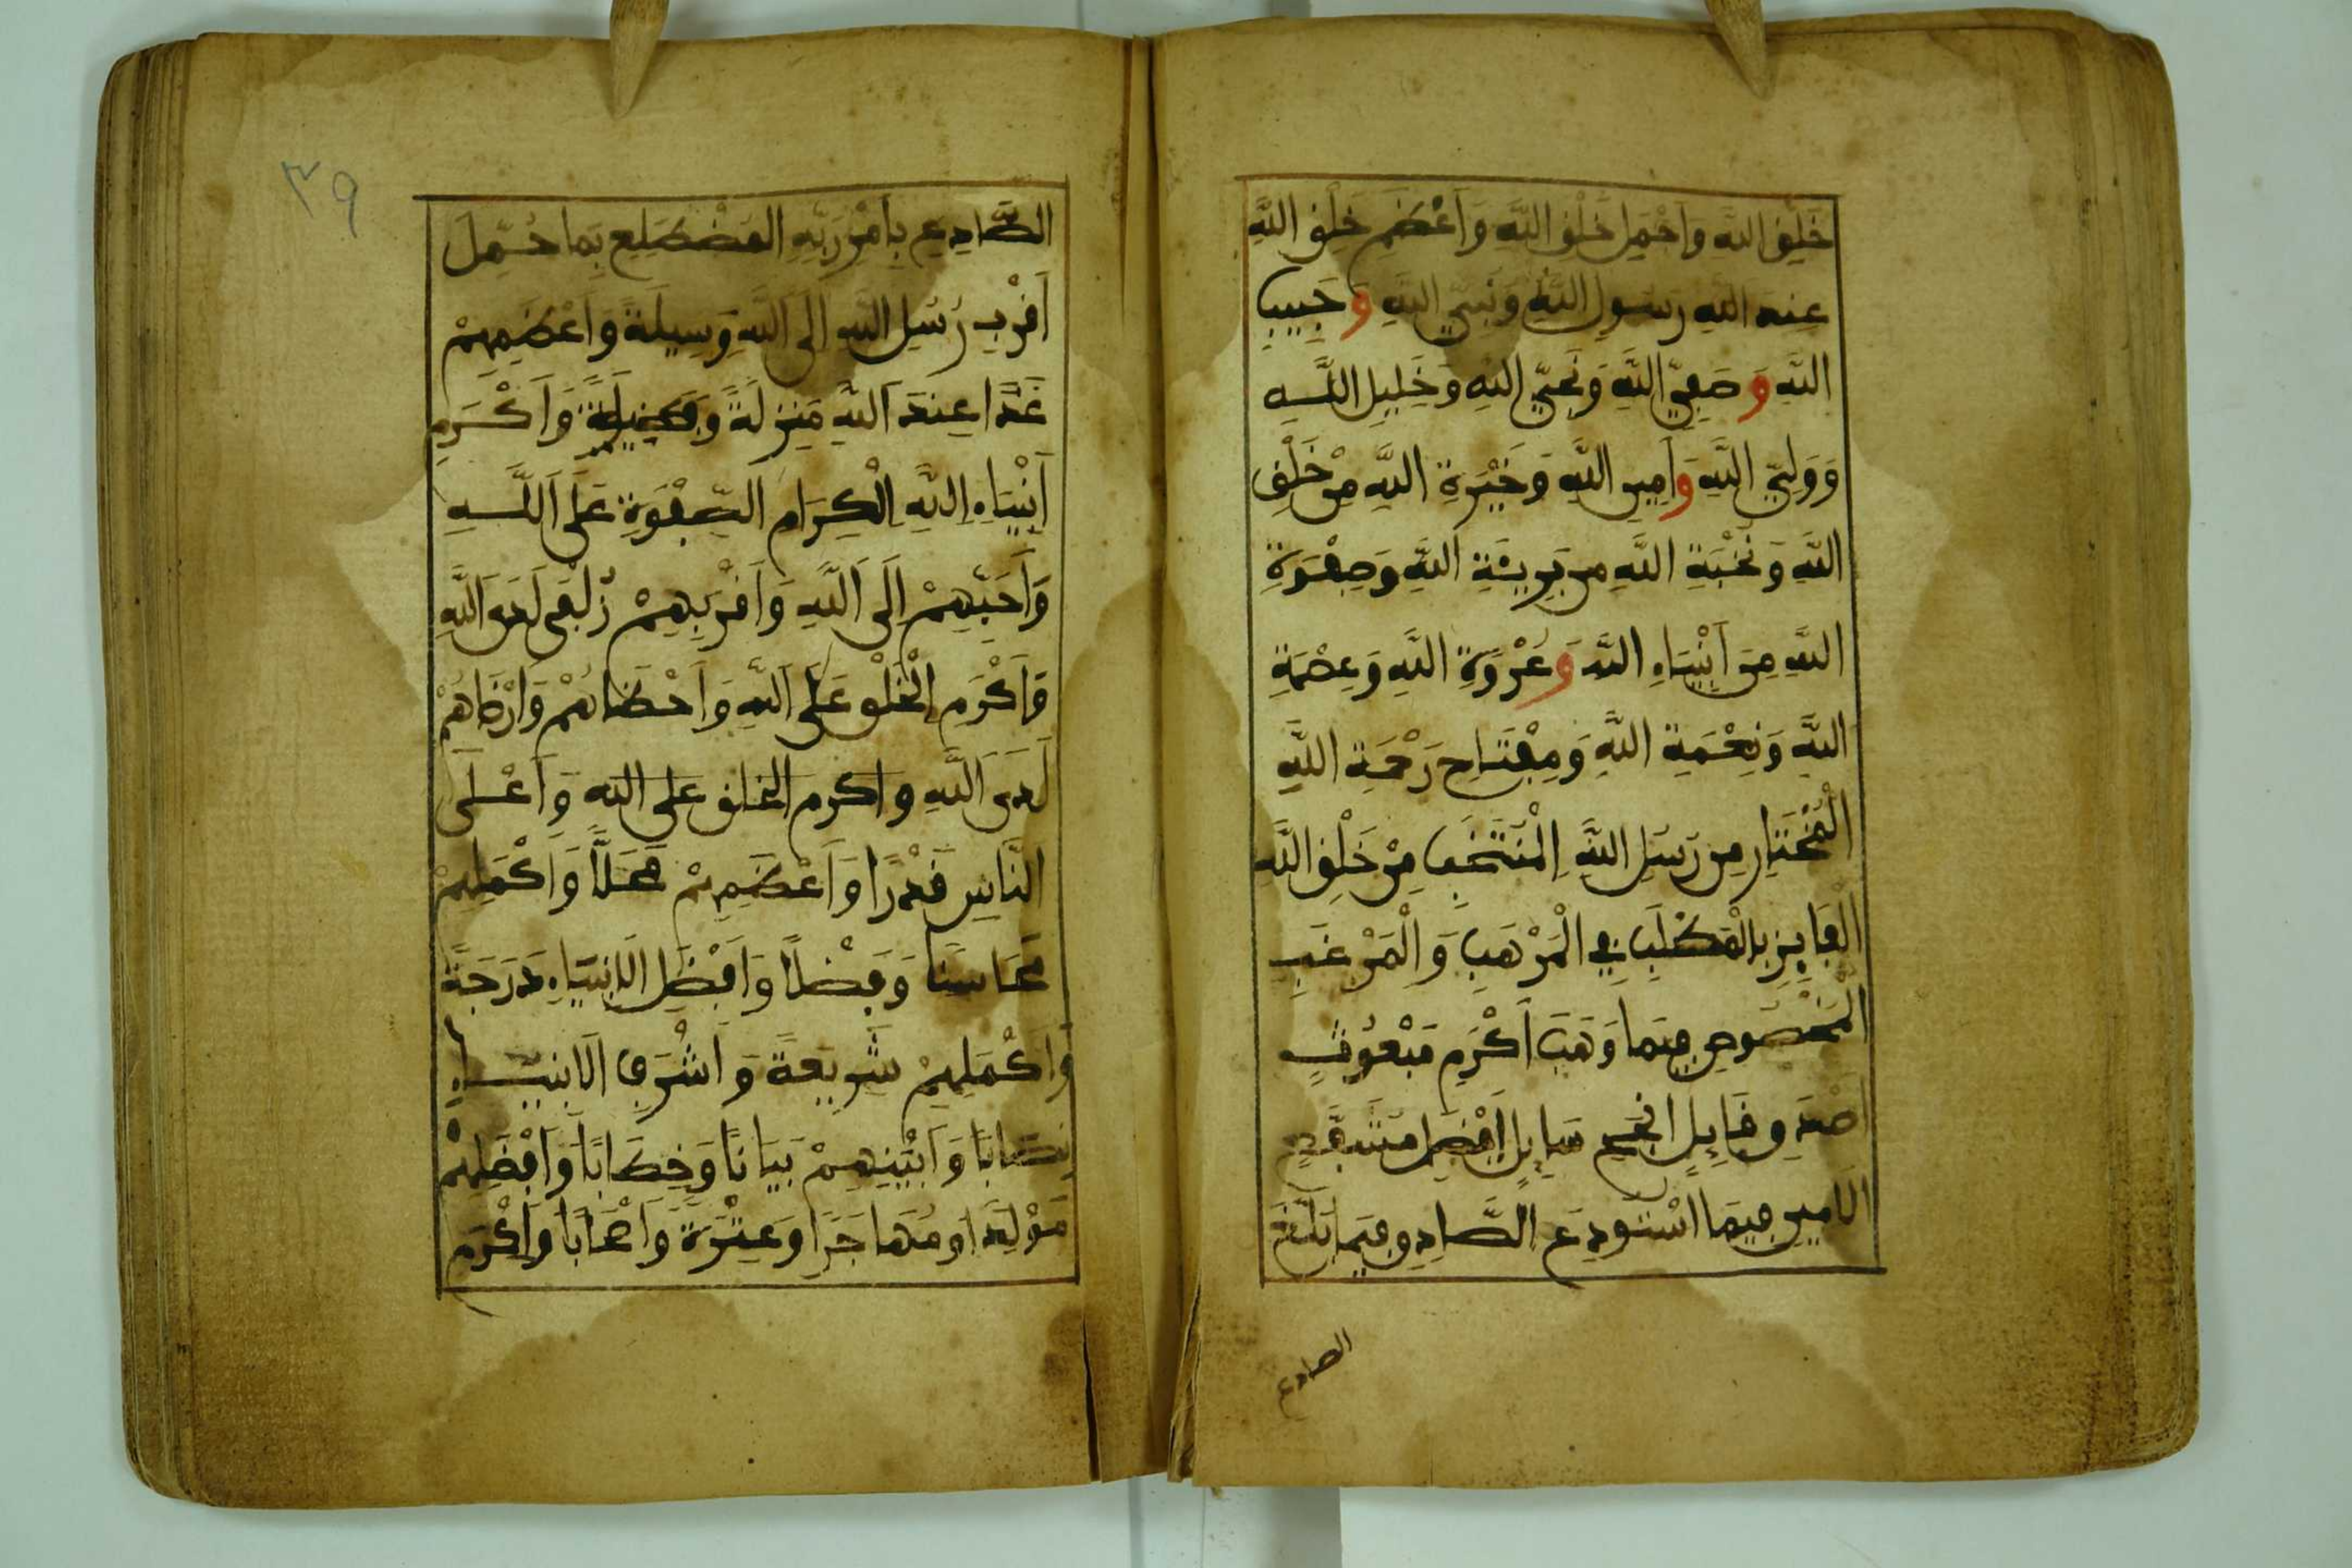 خَلْقِ اللَّهِ وَأَجْمَلِ خَلْقِ اللَّهِ وَأَعْظَمِ خَلْقِ اللَّهِ
عِندَ اللَّهِ رَسُولِ اللَّهِ وَنَبِيِّ اللَّهِ وَحَبِيبِ
اللَّهِ وَصَفِيِّ اللَّهِ وَنَجِيِّ اللَّهِ وَخَلِيلِ اللَّهِ
وَوَلِيِّ اللَّهِ وَأَمِينِ اللَّهِ وَخَيْرَةِ اللَّهِ مِنْ خَلْقِ
اللَّهِ وَنُخْبَةِ اللَّهِ مِن بَرِيَّةِ اللَّهِ وَصَفْوَةِ
اللَّهِ مِنْ أَنْبِيَاءِ اللَّهِ وَعُرْوَةِ اللَّهِ وَعِصْمَةِ
اللَّهِ وَنِعْمَةِ اللَّهِ وَمِفْتَاحِ رَحْمَةِ اللَّهِ
الْمُخْتَارِ مِن رُسُلِ اللَّهِ الْمُنْتَخَبِ مِنْ خَلْقِ اللَّهِ
الْفَايِزِ بِالْمَطْلَبِ فِي الْمَرْهَبِ وَالْمَرْغَبِ
الْمَخْصُوصِ فِيمَا وَهَبَ أَكْرَمِ مَبْعُوثٍ
أَصْدَقِ قَايِلٍ أَنْجَحِ سَايِلٍ أَفْضَلِ مُشَفَّعٍ
الْأَمِينِ فِيمَا اسْتُودِعَ الصَّادِقِ فِيمَا بَلَّغَ
الصادع
٣٩
الصَّادِعِ بِأَمْرِ رَبِّهِ الْمُضْطَلِعِ بِمَا حُمِّلَ
أَقْرَبِ رُسُلِ اللَّهِ إِلَى اللَّهِ وَسِيلَةً وَأَعْظَمِهِمْ
غَدًا عِندَ اللَّهِ مَنزِلَةً وَفَضِيلَةً وَأَكْرَمِ
أَنْبِيَاءِ اللَّهِ الْكِرَامِ الصَّفْوَةِ عَلَى اللَّهِ
وَأَحَبِّهِمْ إِلَى اللَّهِ وَأَقْرَبِهِمْ زُلْفَى لَدَى اللَّهِ
وَأَكْرَمِ الْخَلْقِ عَلَى اللَّهِ وَأَحْظَاهُمْ وَأَرْضَاهُمْ
لَدَى اللَّهِ وأكرم الخلق على الله وَأَعْلَى
النَّاسِ قَدْرًا وَأَعْظَمِهِمْ مَحَلًّا وَأَكْمَلِهِمْ
مَحَاسِنًا وَفَضْلًا وَأَفْضَلِ الْأَنْبِيَاءِ دَرَجَةً
وَأَكْمَلِهِمْ شَرِيعَةً وَأَشْرَفِ الْأَنْبِيَاءِ
نِصَابًا وَأَبْيَنِهِمْ بَيَانًا وَخِطَابًا وَأَفْضَلِهِمْ
مَوْلِدًا وَمُهَاجَرًا وَعِتْرَةً وَأَصْحَابًا وَأَكْرَمِ